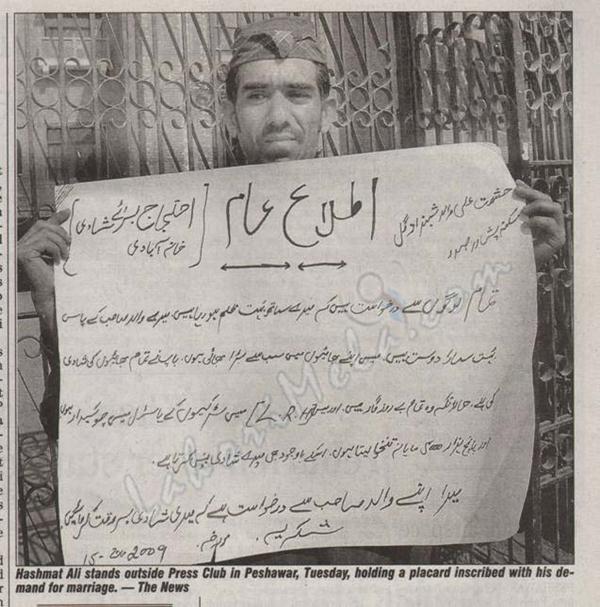 حشمت علی ولد شہزاد گل
سکنہ پشاور
اطلاع عام
احتجاج برائے شادی
خانہ آبادی
تمام لوگوں سے درخواست ہیں کہ میرے ساتھ بہت ظلم ہو رہا ہیں۔ میرے والد صاحب کے پاس
دوست ہیں۔ میں اپنے بھائیوں میں سب سے بڑا بھائی ہوں۔ باپ نے تمام بھائیوں کی شادی
کی ہے۔ حالانکہ وہ تمام بے روزگار ہیں، اور میں میں کے ہاسٹل میں چوکیدار ہوں
اور پانچ ہزار ماہانہ تنخواہ لیتا ہوں۔ اسکے باوجود بھی میرے شادی نہیں کرتا ہے۔
میرا اپنے والد صاحب سے درخواست ہے کہ میری شادی بر وقت
شکریہ۔ مورخہ 15- 2009
LahoriMela.com
Hashmat Ali stands outside Press Club in Peshawar, Tuesday, holding a placard inscribed with his de-
mand for marriage. — The News